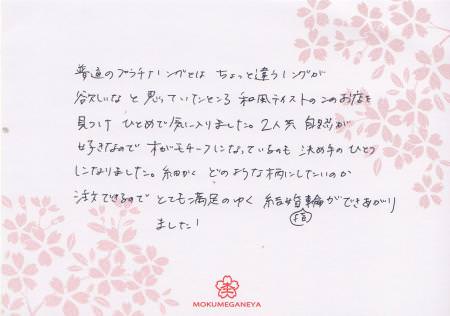 普通のプラチナリングとは ちょっと違うリングが
欲しいな と思っていたところ 和風テイストのこのお店を
見つけ ひとめで気に入りました。2人共 自然が
好きなので 木がモチーフになっているのも 決め手のひとつ
になりました。細かく どのような柄にしたいのか
話ができるので とても満足のゆく 結婚指輪ができあがり
ました!
指
MOKUMEGANEYA